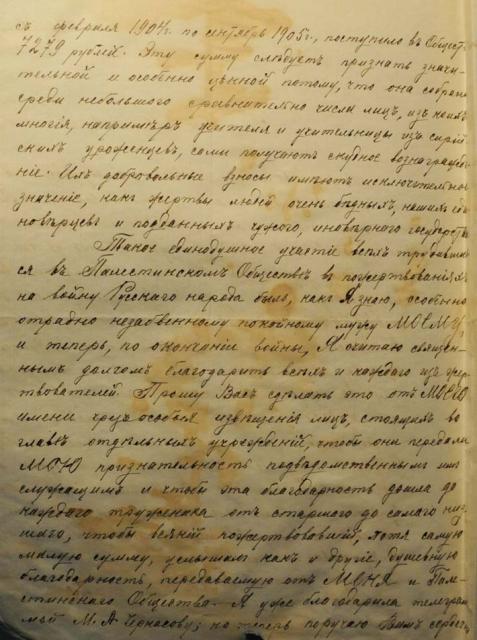 съ февраля 1904г. по сентябрь 1905г., поступило въ Общест
7279 рублей. Эту сумму слѣдуетъ признать значи-
тельной и особенно цѣнной потому, что она собрана
среди небольшого сравнительно числа лицъ, изъ коихъ
многія, напримѣръ учителя и учительницы изъ сирій
скихъ уроженцевъ, сами получаютъ скудное вознагражде
ніе. Ихъ добровольные взносы имѣютъ исключительное
значеніе, какъ жертвы людей очень бѣдныхъ, нашихъ еди
новѣрцевъ и подданныхъ чужого, иновѣрнаго государства
Такое единодушное участіе всѣхъ трудящих
ся въ Палестинскомъ Обществѣ въ пожертвованіяхъ
на войну Русскаго народа было, какъ Я знаю, особенно
отрадно незабвенному покойному мужу МОЕМУ,
и теперь, по окончаніи войны, Я считаю священ-
нымъ долгомъ благодарить всѣхъ и каждаго изъ жер
твователей. Прошу Васъ сдѣлать это отъ МОЕГО
имени чрезъ особыя извѣщенія лицъ, стоящихъ во
главѣ отдѣльныхъ учрежденій, чтобы они передали
МОЮ признательность подвѣдомственнымъ имъ
служащимъ и чтобы эта благодарность дошла до
каждаго труженика отъ старшаго до самаго низ
шаго, чтобы всякій пожертвовавшій, хотя самую
малую сумму, услышалъ какъ и другіе, душевную
благодарность, передаваемую отъ МЕНЯ и Пале-
стинскаго Общества. Я уже благодарила телеграм
мой М. А. но теперь поручаю Вамъ